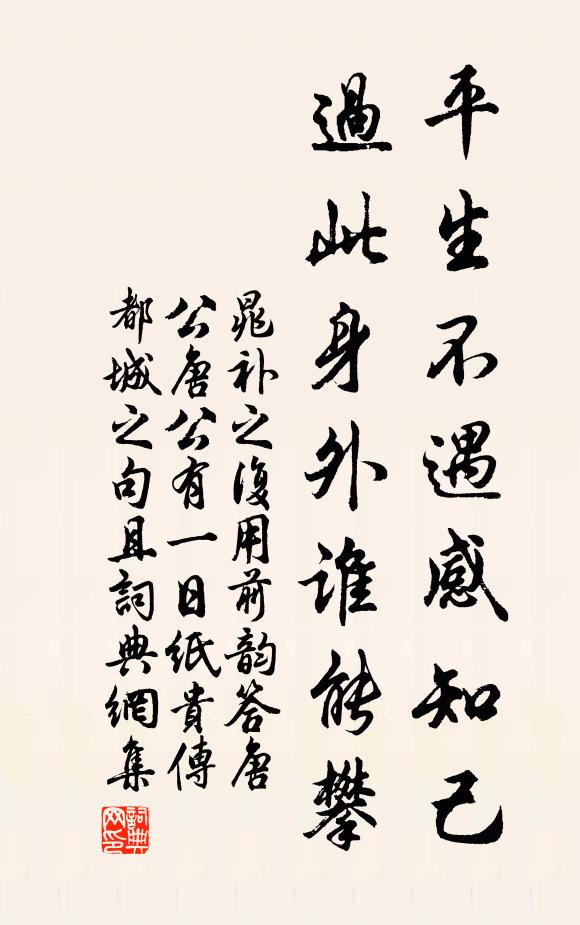 平生不遇感知己
過此身外誰能攀
晁补之復用前韵答唐
公唐公有一日紙貴傳
都城之句且詞典網集
詞典網印